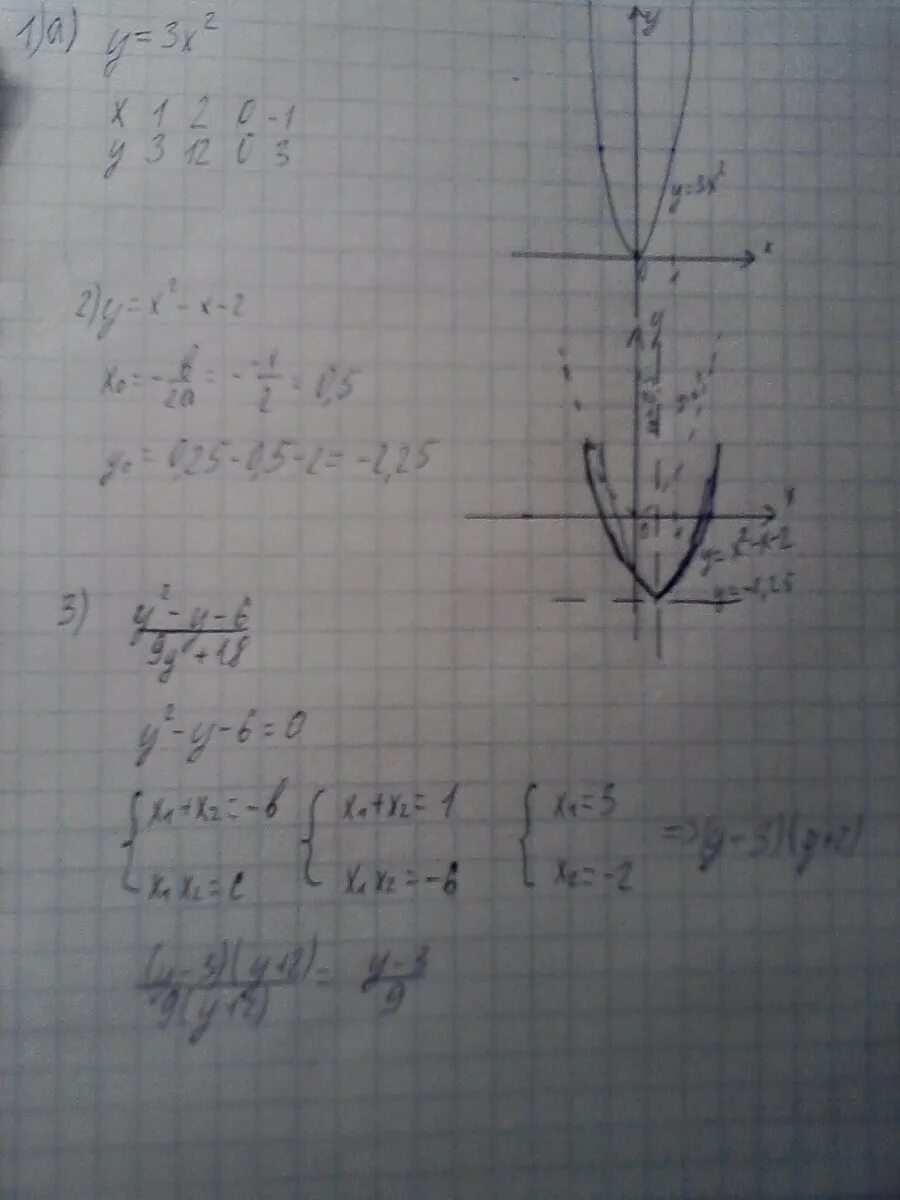 1)а) y = 3x²
x 1 2 0 -1
y 3 12 0 3
y
y=3x²
x
0
1
2) y = x² - x - 2
x₀ = -b/2a = -(-1)/2 = 0,5
y₀ = 0,25 - 0,5 - 2 = -2,25
y
x
0
1
y=x²-x-2
y=-2,25
3) (y² - y - 6)/(9y + 18)
y² - y - 6 = 0
{ x₁+x₂=-b { x₁+x₂=1 { x₁=3
{ x₁x₂=c { x₁x₂=-6 { x₂=-2 => (y-3)(y+2)
(y-3)(y+2)/9(y+2) = (y-3)/9